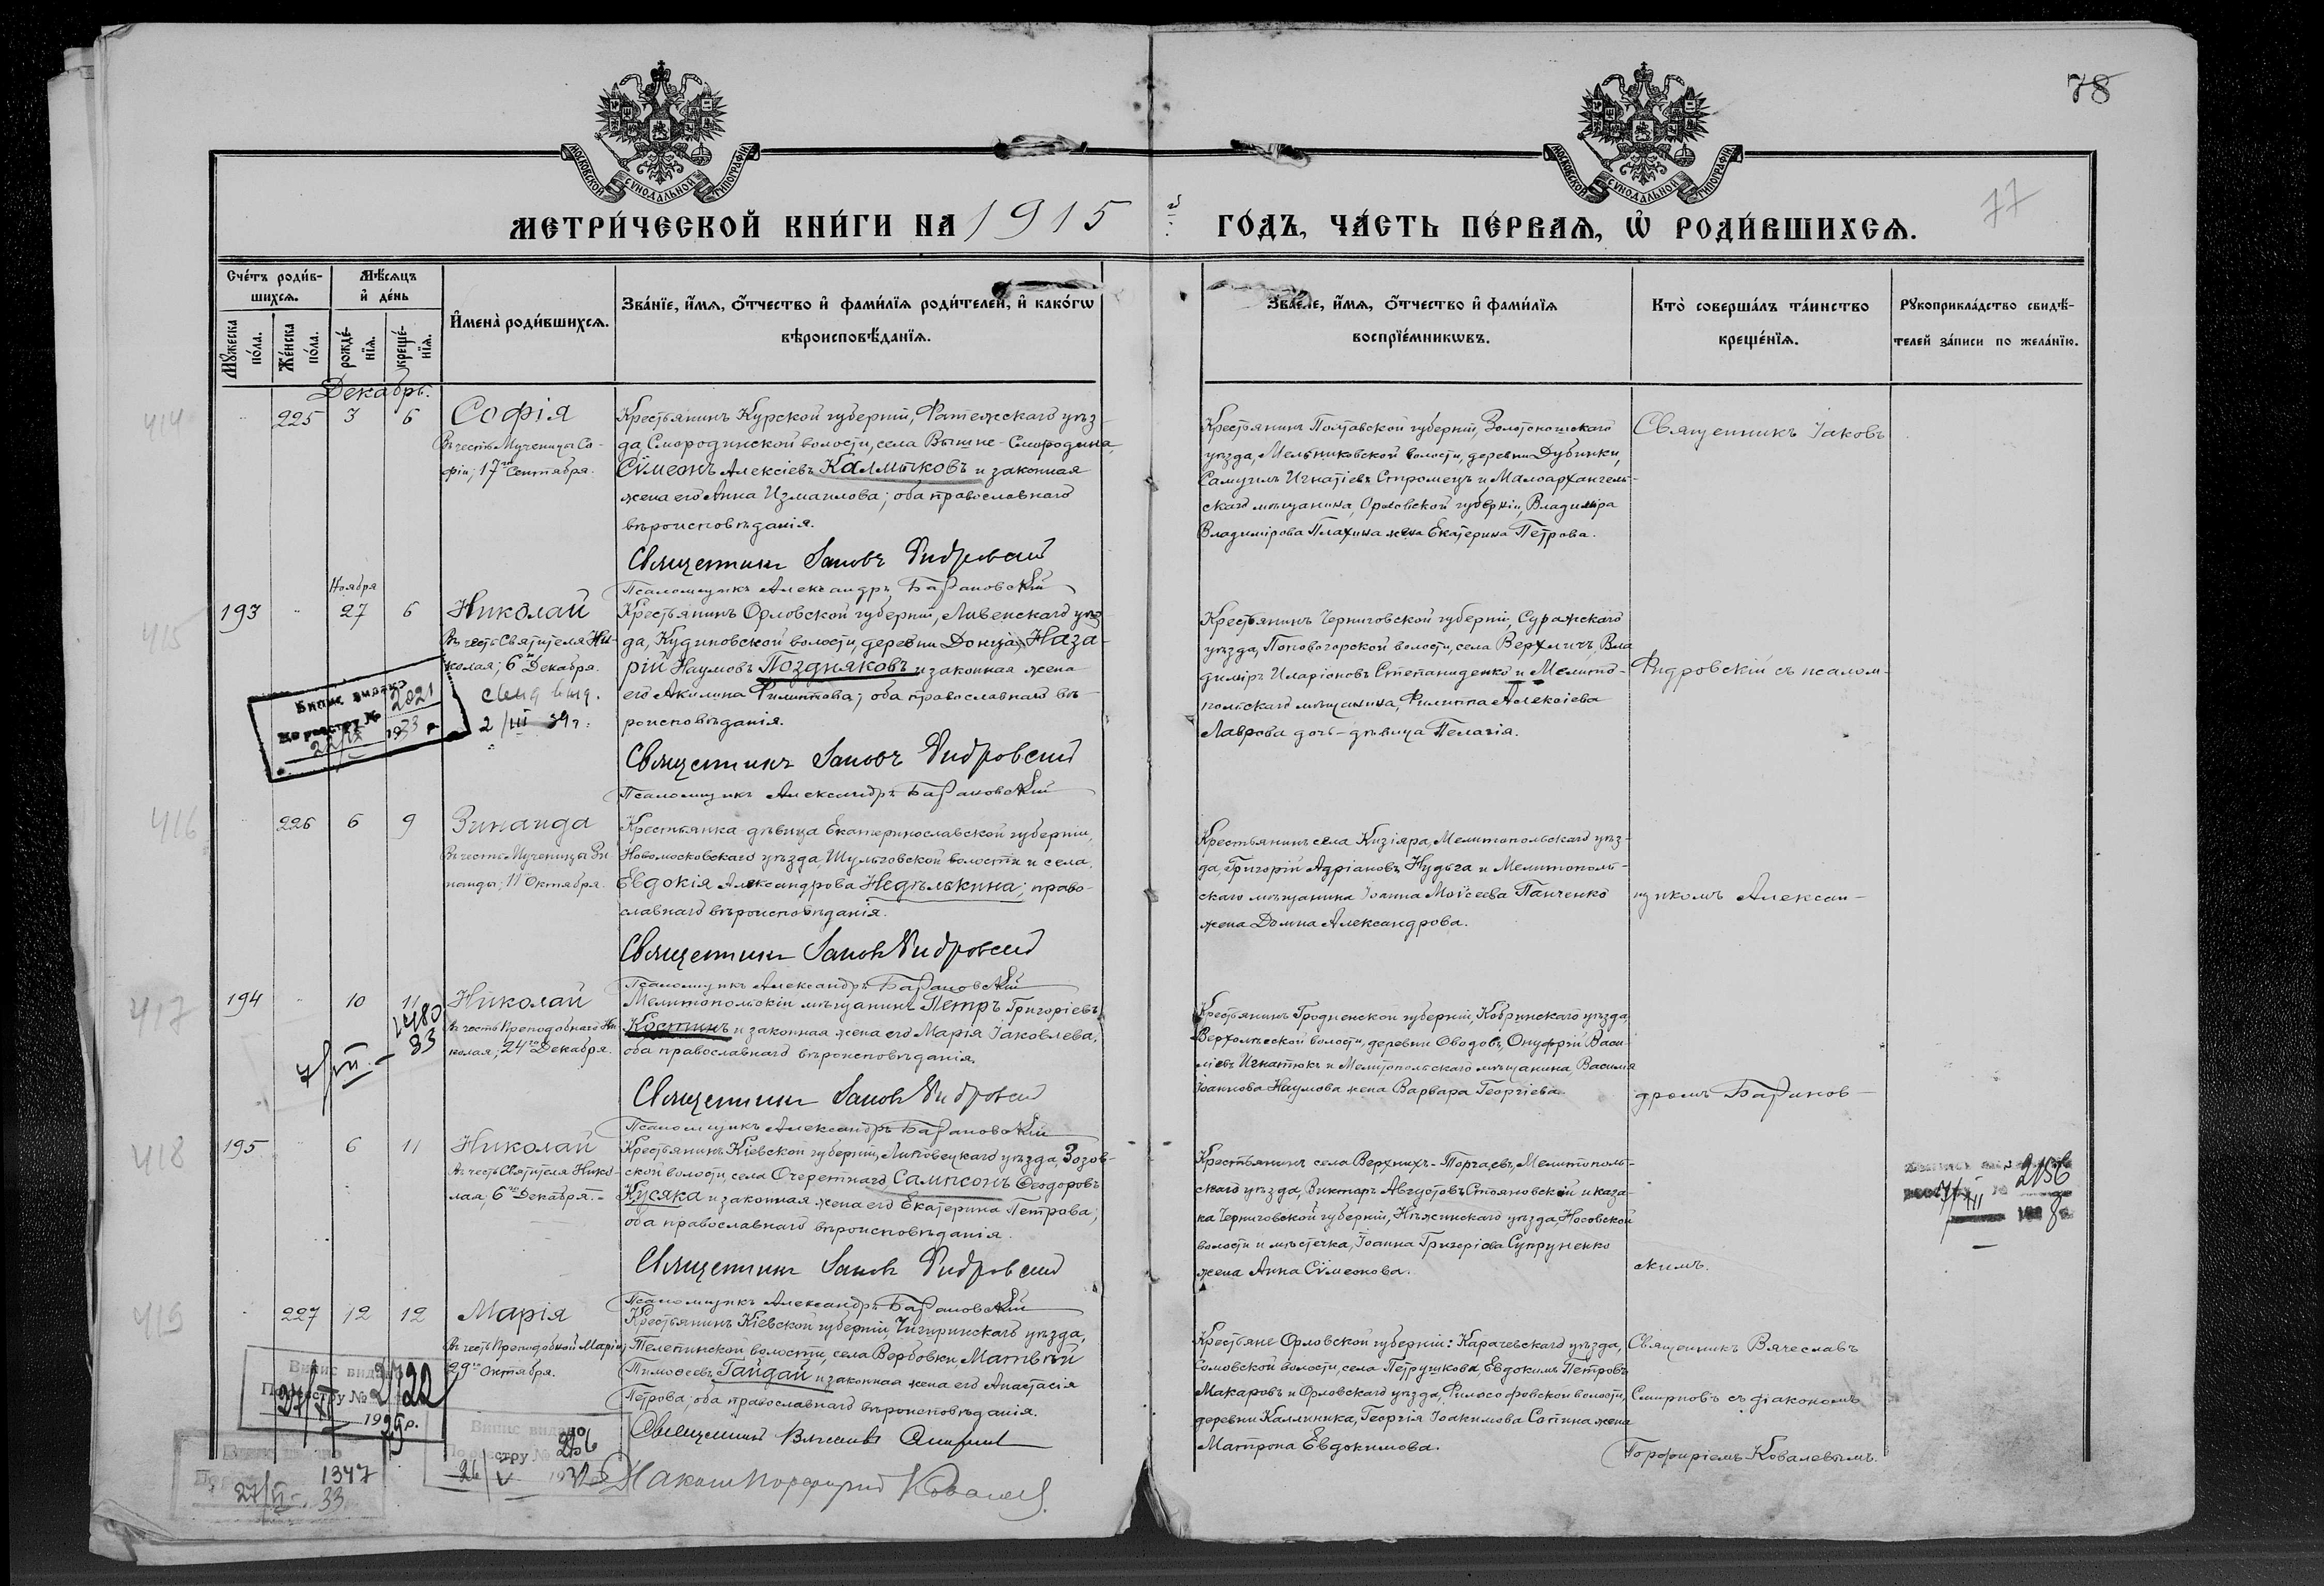 78
77
МОСКОВСКОЙ СѴНОДАЛЬНОЙ ТИПОГРАФІИ
МОСКОВСКОЙ СѴНОДАЛЬНОЙ ТИПОГРАФІИ
МЕТРИ́ЧЕСКОЙ КНИ́ГИ НА 1915 ГО́ДЪ, ЧА́СТЬ ПЕ́РВАѦ, Ѡ҆ РОДИ́ВШИХСѦ.
Сче́тъ роди́в-
шихсѧ.
Мꙋжеска по́ла.
Же́нска по́ла.
Мѣ́сѧцъ
и҆ де́нь
рожде́-
нїѧ.
креще́-
нїѧ.
И҆мена̀ роди́вшихсѧ.
Зва́нїе, и҆́мѧ, ѻ҆́тчество и҆ фами́лїѧ роди́телей, и҆ како́гѡ
вѣроисповѣ́данїѧ.
Зва́нїе, и҆́мѧ, ѻ҆́тчество и҆ фами́лїѧ
воспрїе́мникѡвъ.
Кто̀ соверша́лъ та́инство
креще́нїѧ.
Рꙋкоприкла́дство свидѣ́-
телей за́писи по жела́нїю.
Декабрь.
414
225 3 6
Софія
Въ честь Мученицы Со-
фіи; 17го Сентября.
Крестьянинъ Курской губерніи, Фатежскаго уѣз-
да, Смородинской волости, села Вышне-Смородина,
Сѵмеонъ Алексіевъ Калмыковъ и законная
жена его Анна Измаилова; оба православнаго
вѣроисповѣданія.
Священникъ Іаковъ Фидровскій
Псаломщикъ Александръ Барановскій
Крестьянинъ Полтавской губерніи, Золотоношскаго
уѣзда, Мельниковской волости, деревни Дубинки,
Самуилъ Игнатіевъ Стромецъ и Малоархангель-
скаго мѣщанина, Орловской губерніи, Владиміра
Владимірова Плахина жена Екатерина Петрова.
Священникъ Іаковъ
415
Ноября
193 27 6
Николай
Въ честь Святителя Ни-
колая; 6го Декабря.
2/III 39г.
Випис видано
По реєстру № 2021
1933 р.
Крестьянинъ Орловской губерніи, Ливенскаго уѣз-
да, Кудиновской волости, деревни Донца, Наза-
рій Наумовъ Поздняковъ и законная жена
его Акилина Филиппова; оба православнаго вѣ-
роисповѣданія.
Священникъ Іаковъ Фидровскій
Псаломщикъ Александръ Барановскій
Крестьянинъ Черниговской губерніи, Суражскаго
уѣзда, Поповогорской волости, села Верхличъ, Вла-
диміръ Иларіоновъ Степаниденко и Мелито-
польскаго мѣщанина, Филиппа Алексіева
Лаврова дочь-дѣвица Пелагія.
Фидровскій съ псалом-
416
226 6 9
Зинаида
Въ честь Мученицы Зи-
наиды; 11го Октября.
Крестьянка дѣвица Екатеринославской губерніи,
Новомосковскаго уѣзда, Шульговской волости и села,
Евдокія Александрова Недѣлькина; право-
славнаго вѣроисповѣданія.
Священникъ Іаковъ Фидровскій
Псаломщикъ Александръ Барановскій
Крестьянинъ села Кизіяра, Мелитопольскаго уѣз-
да, Григорій Адріановъ Нудьга и Мелитополь-
скаго мѣщанина Іоанна Моѵсеева Панченко
жена Домна Александрова.
щикомъ Алексан-
417
194 10 11
Николай
Въ честь Преподобнаго Ни-
колая; 24го Декабря.
33
Мелитопольскій мѣщанинъ Петръ Григоріевъ
Костинъ и законная жена его Марія Іаковлева;
оба православнаго вѣроисповѣданія.
Священникъ Іаковъ Фидровскій
Псаломщикъ Александръ Барановскій
Крестьянинъ Гродненской губерніи, Кобринскаго уѣзда,
Верхолѣсской волости, деревни Оводовъ, Онуфрій Васи-
ліевъ Игнатюкъ и Мелитопольскаго мѣщанина, Василія
Іоаннова Наумова жена Варвара Георгіева.
дромъ Баранов-
418
195 6 11
Николай
Въ честь Святителя Нико-
лая; 6го Декабря.
Крестьянинъ Кіевской губерніи, Липовецкаго уѣзда, Зозов-
ской волости, села Очеретнаго Сампсонъ Ѳеодоровъ
Кусяка и законная жена его Екатерина Петрова;
оба православнаго вѣроисповѣданія.
Священникъ Іаковъ Фидровскій
Псаломщикъ Александръ Барановскій
Крестьянинъ села Верхнихъ-Торгаевъ, Мелитополь-
скаго уѣзда, Викторъ Августовъ Стояновскій и каза-
ка Черниговской губерніи, Нѣжинскаго уѣзда, Носовской
волости и мѣстечка, Іоанна Григоріева Супруненко
жена Анна Сѵмеонова.
скимъ.
2156
419
227 12 12
Марія
Въ честь Преподобной Маріи;
29го Октября.
Крестьянинъ Кіевской губерніи, Чигиринскаго уѣзда,
Телепинской волости, села Вербовки, Матвѣй
Тимоѳеевъ Гайдай и законная жена его Анастасія
Петрова; оба православнаго вѣроисповѣданія.
Священникъ Вячеславъ Смирновъ
Діаконъ Порфирій Ковалевъ.
Крестьяне Орловской губерніи: Карачевскаго уѣзда,
Сомовской волости, села Петрушкова, Евдокимъ Петровъ
Макаровъ и Орловскаго уѣзда, Философовской волости,
деревни Калинника, Георгія Іоакимова Сотина жена
Матрона Евдокимова.
Священникъ Вячеславъ
Смирновъ съ діакономъ
Порфиріемъ Ковалевымъ.
Випис видано
По реєстру №
Випис видано
По реєстру №
1347
33